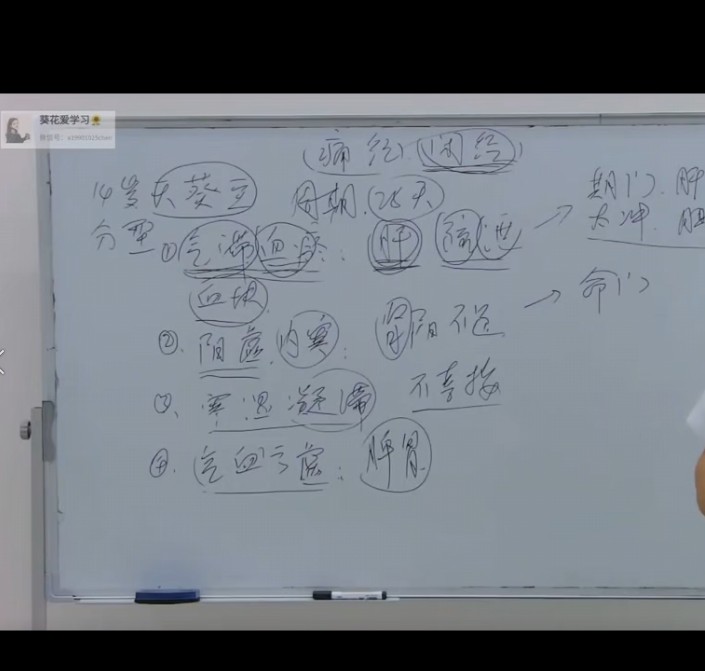 葵花爱学习🌻
痛经 闭经
14岁天葵至 周期 28天
分型 ① 气滞血瘀: 肝 疏泄 → 期门. 肝
太冲.
血块
②. 阳虚内寒: 肾阳不足 → 命门
③. 寒湿凝滞 不喜按
④. 气血亏虚: 脾胃